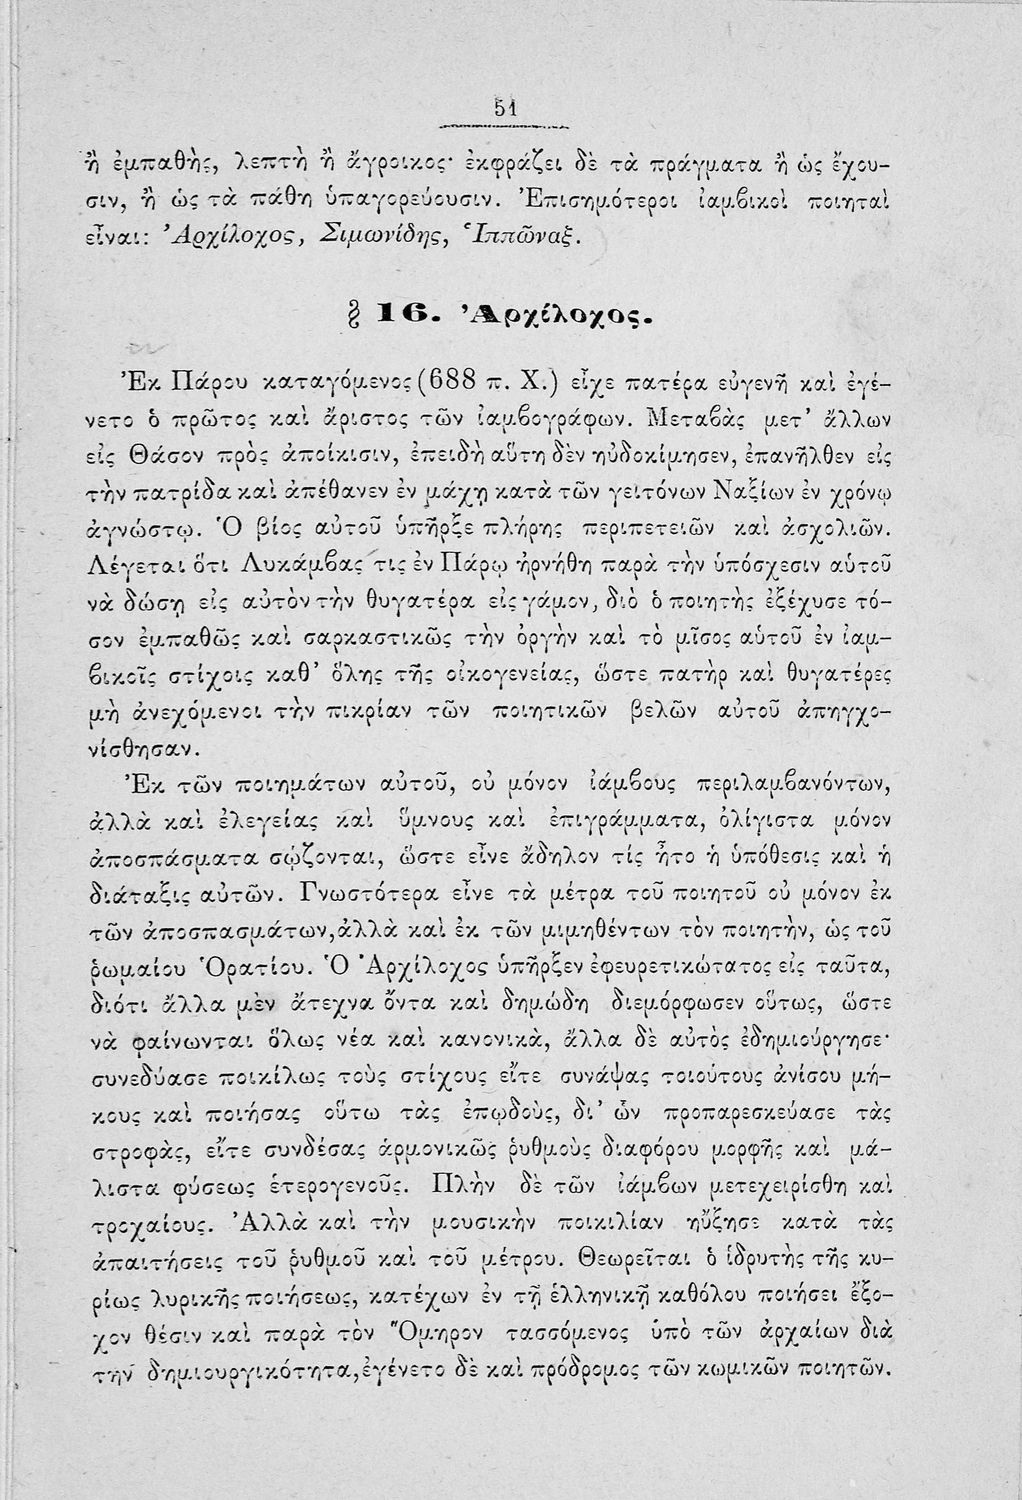 51
ἢ ἐμπαθὴς, λεπτὴ ἢ ἄγροικος· ἐκφράζει δὲ τὰ πράγματα ἢ ὡς ἔχου-
σιν, ἢ ὡς τὰ πάθη ὑπαγορεύουσιν. Ἐπισημότεροι ἰαμβικοὶ ποιηταὶ
εἶναι: Ἀρχίλοχος, Σιμωνίδης, Ἱππῶναξ.
§ 16. Ἀρχίλοχος.
Ἐκ Πάρου καταγόμενος (688 π. Χ.) εἶχε πατέρα εὐγενῆ καὶ ἐγέ-
νετο ὁ πρῶτος καὶ ἄριστος τῶν ἰαμβογράφων. Μεταβὰς μετ’ ἄλλων
εἰς Θάσον πρὸς ἀποίκισιν, ἐπειδὴ αὕτη δὲν ηὐδοκίμησεν, ἐπανῆλθεν εἰς
τὴν πατρίδα καὶ ἀπέθανεν ἐν μάχῃ κατὰ τῶν γειτόνων Ναξίων ἐν χρόνῳ
ἀγνώστῳ. Ὁ βίος αὐτοῦ ὑπῆρξε πλήρης περιπετειῶν καὶ ἀσχολιῶν.
Λέγεται ὅτι Λυκάμβας τις ἐν Πάρῳ ἠρνήθη παρὰ τὴν ὑπόσχεσιν αὑτοῦ
νὰ δώσῃ εἰς αὐτὸν τὴν θυγατέρα εἰς γάμον, διὸ ὁ ποιητὴς ἐξέχυσε τό-
σον ἐμπαθῶς καὶ σαρκαστικῶς τὴν ὀργὴν καὶ τὸ μῖσος αὑτοῦ ἐν ἰαμ-
βικοῖς στίχοις καθ’ ὅλης τῆς οἰκογενείας, ὥστε πατὴρ καὶ θυγατέρες
μὴ ἀνεχόμενοι τὴν πικρίαν τῶν ποιητικῶν βελῶν αὐτοῦ ἀπηγχο-
νίσθησαν.
Ἐκ τῶν ποιημάτων αὐτοῦ, οὐ μόνον ἰάμβους περιλαμβανόντων,
ἀλλὰ καὶ ἐλεγείας καὶ ὕμνους καὶ ἐπιγράμματα, ὀλίγιστα μόνον
ἀποσπάσματα σῴζονται, ὥστε εἶνε ἄδηλον τίς ἦτο ἡ ὑπόθεσις καὶ ἡ
διάταξις αὐτῶν. Γνωστότερα εἶνε τὰ μέτρα τοῦ ποιητοῦ οὐ μόνον ἐκ
τῶν ἀποσπασμάτων, ἀλλὰ καὶ ἐκ τῶν μιμηθέντων τὸν ποιητὴν, ὡς τοῦ
ῥωμαίου Ὁρατίου. Ὁ Ἀρχίλοχος ὑπῆρξεν ἐφευρετικώτατος εἰς ταῦτα,
διότι ἄλλα μὲν ἄτεχνα ὄντα καὶ δημώδη διεμόρφωσεν οὕτως, ὥστε
νὰ φαίνωνται ὅλως νέα καὶ κανονικὰ, ἄλλα δὲ αὐτὸς ἐδημιούργησε·
συνεδύασε ποικίλως τοὺς στίχους εἴτε συνάψας τοιούτους ἀνίσου μή-
κους καὶ ποιήσας οὕτω τὰς ἐπῳδοὺς, δι’ ὧν προπαρεσκεύασε τὰς
στροφὰς, εἴτε συνδέσας ἁρμονικῶς ῥυθμοὺς διαφόρου μορφῆς καὶ μά-
λιστα φύσεως ἑτερογενοῦς. Πλὴν δὲ τῶν ἰάμβων μετεχειρίσθη καὶ
τροχαίους. Ἀλλὰ καὶ τὴν μουσικὴν ποικιλίαν ηὔξησε κατὰ τὰς
ἀπαιτήσεις τοῦ ῥυθμοῦ καὶ τοῦ μέτρου. Θεωρεῖται ὁ ἱδρυτὴς τῆς κυ-
ρίως λυρικῆς ποιήσεως, κατέχων ἐν τῇ ἑλληνικῇ καθόλου ποιήσει ἔξο-
χον θέσιν καὶ παρὰ τὸν Ὅμηρον τασσόμενος ὑπὸ τῶν ἀρχαίων διὰ
τὴν δημιουργικότητα, ἐγένετο δὲ καὶ πρόδρομος τῶν κωμικῶν ποιητῶν.